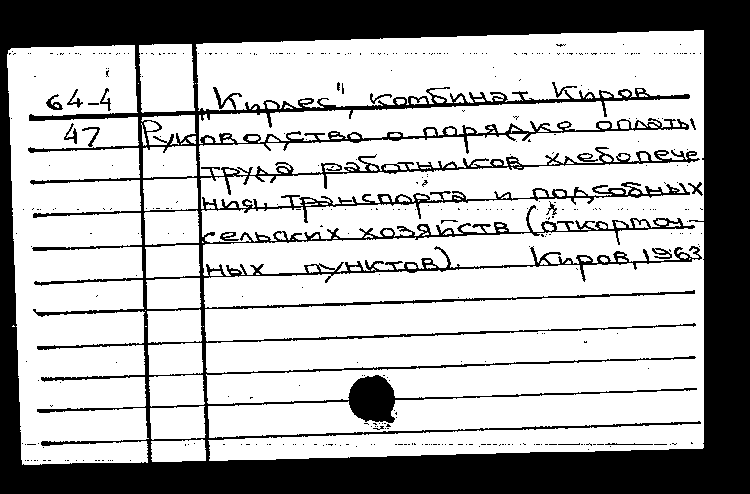 64-4 „Кирлес", комбинат. Киров.
47 Руководство о порядке оплаты
труда работников хлебопече-
ния, транспорта и подсобных
сельских хозяйств (откормоч-
ных пунктов). Киров, 1963